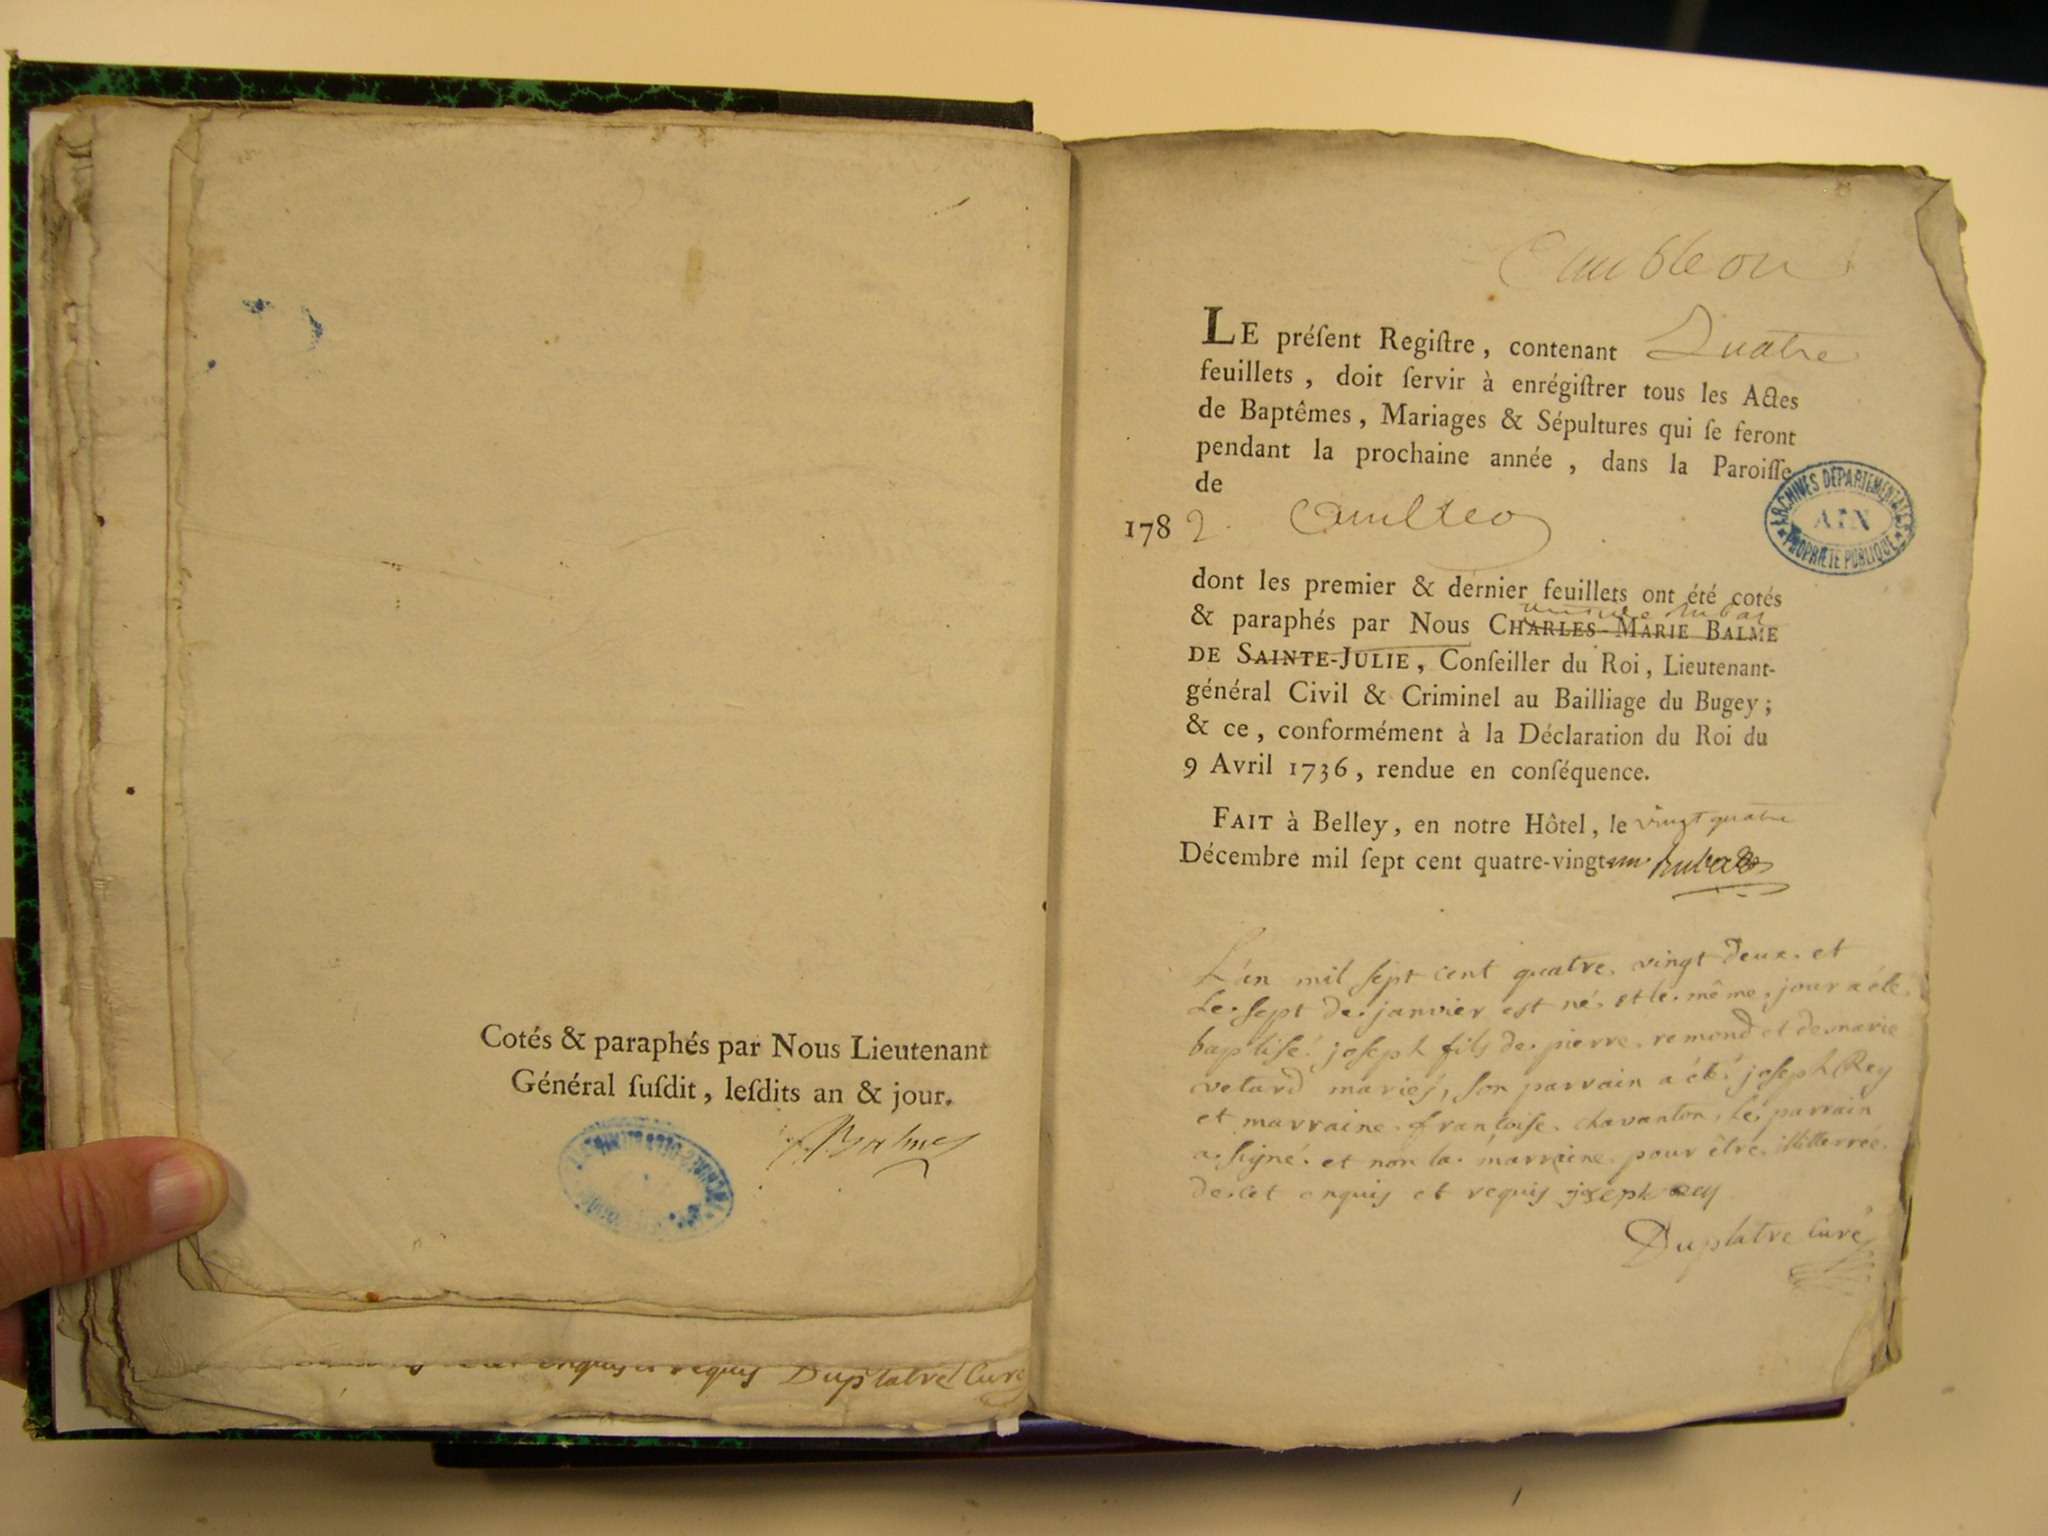 Cotés & paraphés par Nous Lieutenant
Général ſuſdit, leſdits an & jour.
Balme
enquis et requis Duplatre Curé
LE préſent Regiſtre, contenant Quatre
feuillets, doit ſervir à enrégiſtrer tous les Actes
de Baptêmes, Mariages & Sépultures qui ſe feront
pendant la prochaine année, dans la Paroiſſe
de
1782.
ARCHIVES DÉPARTEMENTALES
AIN
PROPRIÉTÉ PUBLIQUE
dont les premier & dernier feuillets ont été cotés
& paraphés par Nous CHARLES-MARIE BALME
DE SAINTE-JULIE, Conſeiller du Roi, Lieutenant-
général Civil & Criminel au Bailliage du Bugey;
& ce, conformément à la Déclaration du Roi du
9 Avril 1736, rendue en conſéquence.
FAIT à Belley, en notre Hôtel, le vingt quatre
Décembre mil ſept cent quatre-vingt un.
L'an mil sept cent quatre. vingt deux. et
Le. sept de. janvier est né. et le. même. jour a été.
baptisé. joseph fils de. pierre. remond et de marie
vetard mariés, son parrain a été joseph Rey
et marraine. françoise. chavanton, le. parrain
a. signé. et non la. marraine. pour être. illitterrée.
de. cet enquis et requis joseph rey
Duplatre Curé